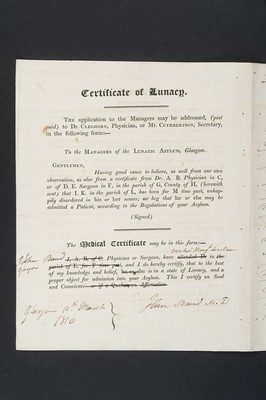 Certificate of Lunacy.
THE application to the Managers may be addressed, (post
paid) to Dr. CLEGHORN, Physician, or Mr. CUTHBERTSON, Secretary,
in the following form:—
To the MANAGERS of the LUNATIC ASYLUM, Glasgow.
GENTLEMEN,
Having good cause to believe, as well from our own
observation, as also from a certificate from Dr. A. B. Physician in C,
or of D. E. Surgeon in F, in the parish of G, County of H, (herewith
sent) that I. K. in the parish of L. has been for M time past, unhap-
pily disordered in his or her senses; we beg that he or she may be
admitted a Patient, according to the Regulations of your Asylum.
(Signed)
The Medical Certificate may be in this form—
John Baird I, A. B. of C. Physician or Surgeon, have attended D. in the
Glasgow parish of E. for F time past, and I do hereby certify, that to the best
of my knowledge and belief, he or she is in a state of Lunacy, and a
proper object for admission into your Asylum. This I certify on Soul
and Conscience—or if a Quaker on Affirmation.
Glasgow 11th March
1816
John Baird M.D